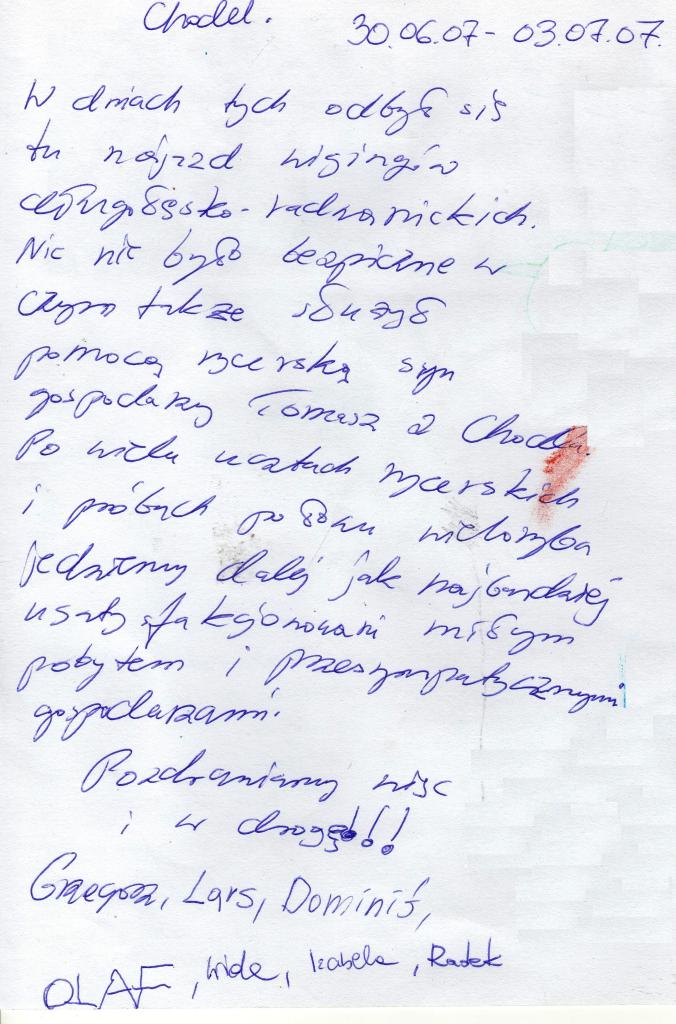 Chodel. 30.06.07 - 03.07.07.
W dniach tych odbył się
tu najazd wigingów
długołęsko-radwanickich.
Nic nie było bezpieczne w
czym także służył
pomocą rycerską syn
gospodarzy Tomasz z Chodla.
Po wielu ucztach rycerskich
i próbach połowu wieloryba
jedziemy dalej jak najbardziej
usatysfakcjonowani miłym
pobytem i przesympatycznymi
gospodarzami.
Pozdrawiamy więc
i w drogę!!!
Grzegorz, Lars, Dominiś,
OLAF, Izabela, Radek